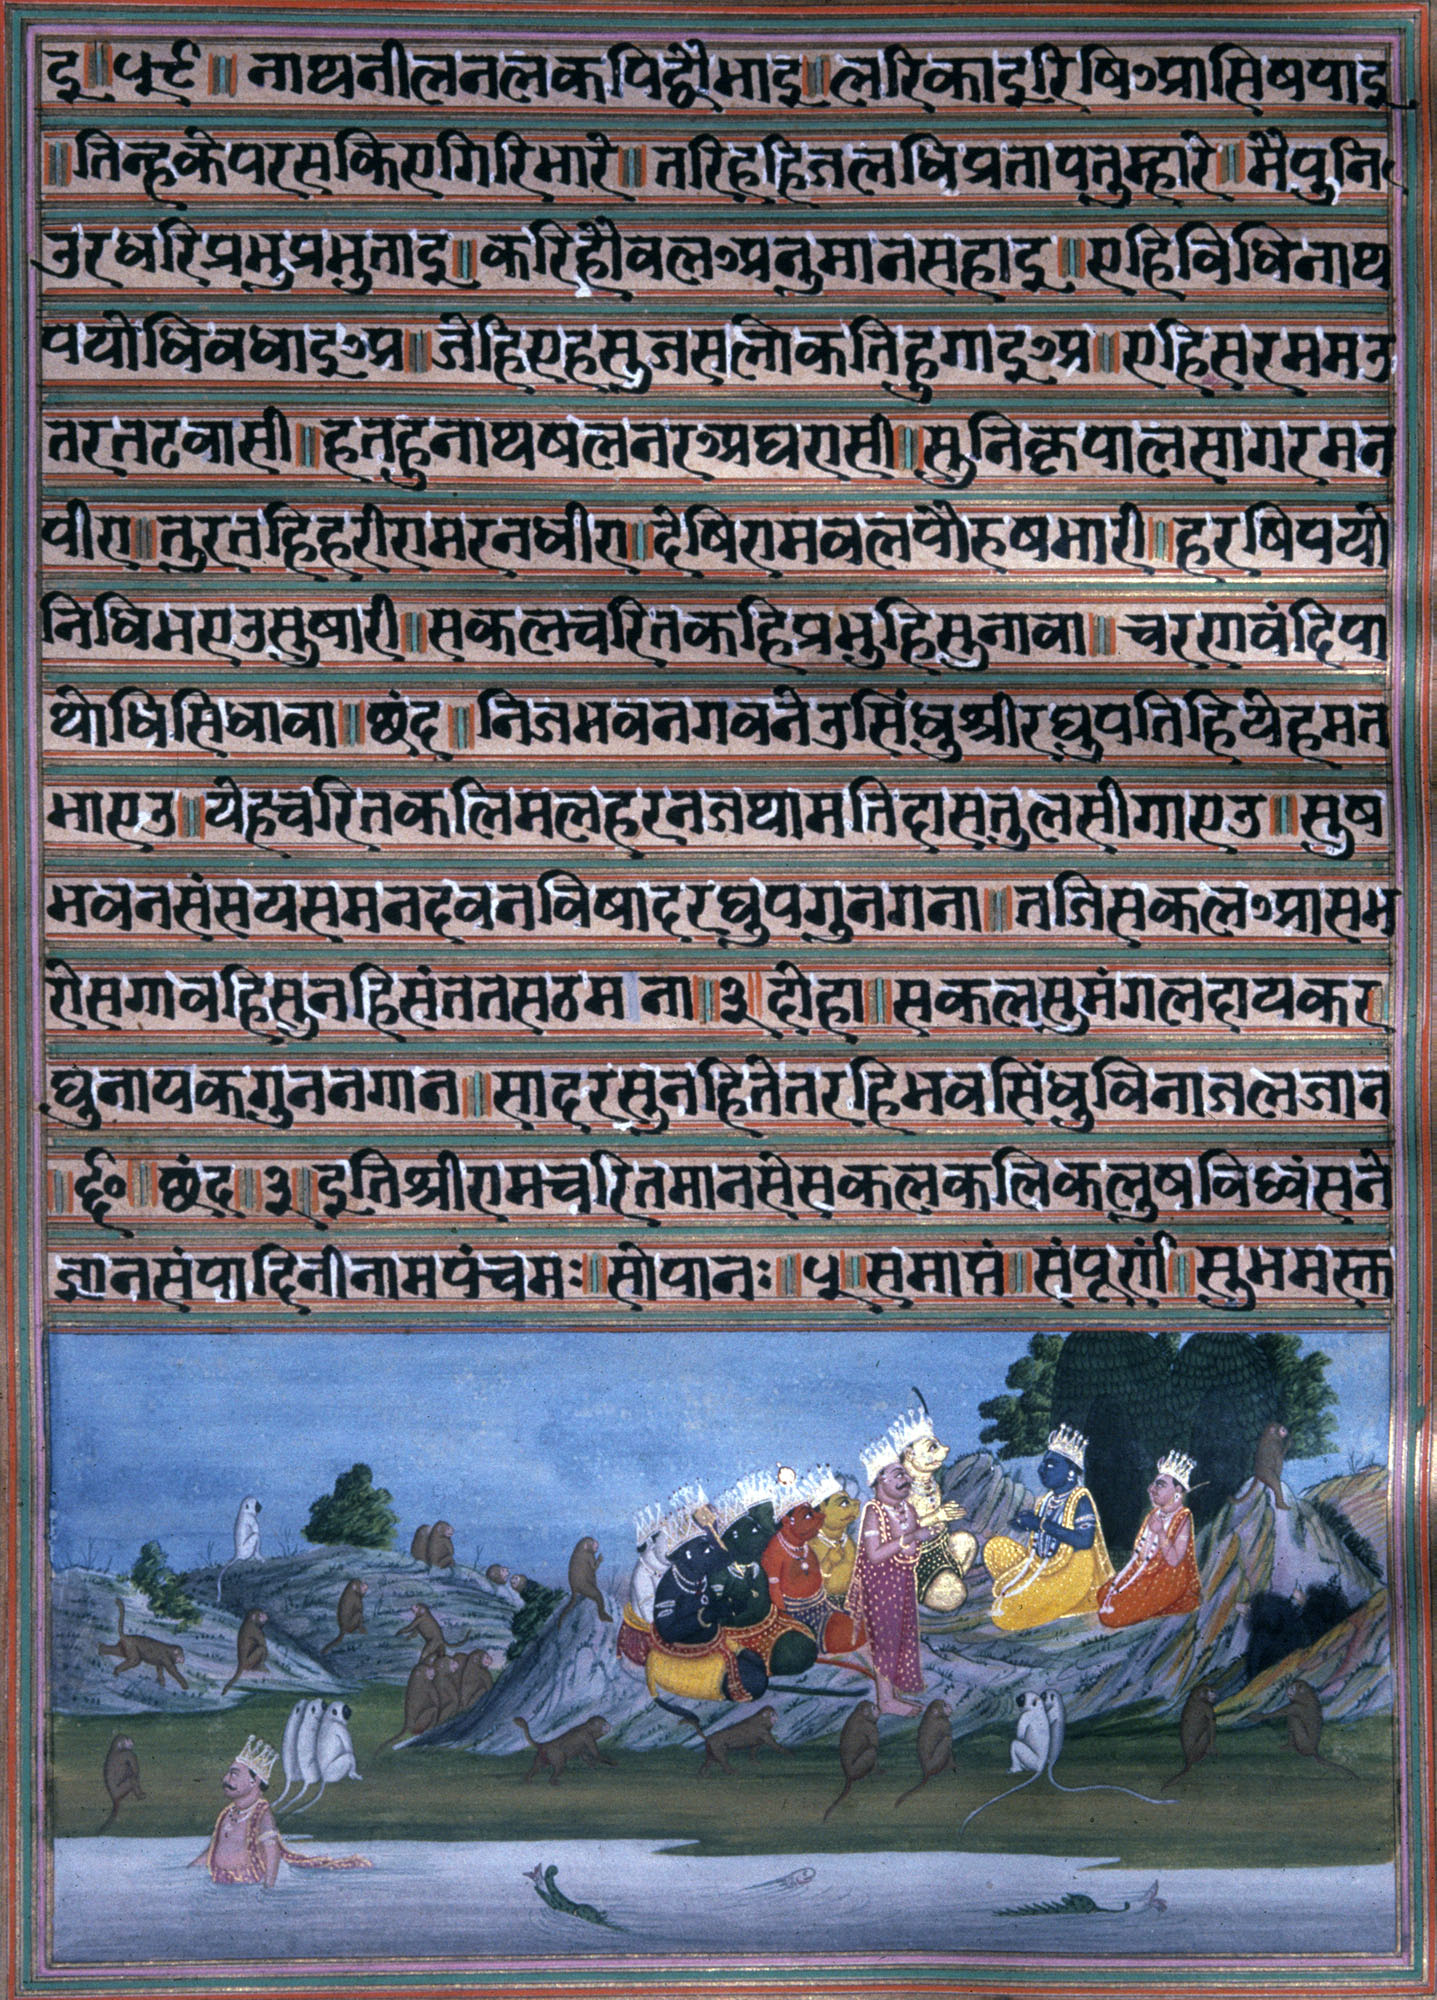 इ ॥ ५९ ॥ नाथनीलनलकपिद्वौभाइ ॥ लरिकाइरिषिआसिषपाइ
॥ तिन्हकेपरसकिएगिरिभारे ॥ तरिहहिजलधिप्रतापतुम्हारे ॥ मैपुनि
उरधरिप्रभुप्रभुताइ ॥ करिहौवलअनुमानसहाइ ॥ एहिविधिनाथ
पयोधिवधाइअ ॥ जेहिएहसुजसलोकतिहुगाइअ ॥ एहिसरममउ
तरतटवासी ॥ हतहुनाथषलनरअघरासी ॥ सुनिकृपालसागरमन
पीरा ॥ तुरतहिहरीरामरनधीरा ॥ देषिरामवलपौरुषभारी ॥ हरषिपयो
निधिभएउसुषारी ॥ सकलचरितकहिप्रभुहिसुनावा ॥ चरणवंदिपा
थोधिसिधावा ॥ छंद ॥ निजभवनगवनेउसिंधुश्रीरघुपतिहियेहमत
भाएउ ॥ येहचरितकलिमलहरनजथामतिदासतुलसीगाएउ ॥ सुष
भवनसंसयसमनदवनविषादरघुपगुनगना ॥ तजिसकलआसभ
रोसगावहिसुनहिसंततसठमना ॥ ३ ॥ दोहा ॥ सकलसुमंगलदायकर
घुनायकगुननगान ॥ सादरसुनहितेतरहिभवसिंधुविनाजलजान
॥ ६० ॥ छंद ॥ ३ ॥ इतिश्रीरामचरितमानसेसकलकलिकलुषविध्वंसने
ज्ञानसंपादिनीनामपंचमः ॥ सोपानः ॥ ५ ॥ समाप्तं ॥ संपूर्णं ॥ सुभमस्त